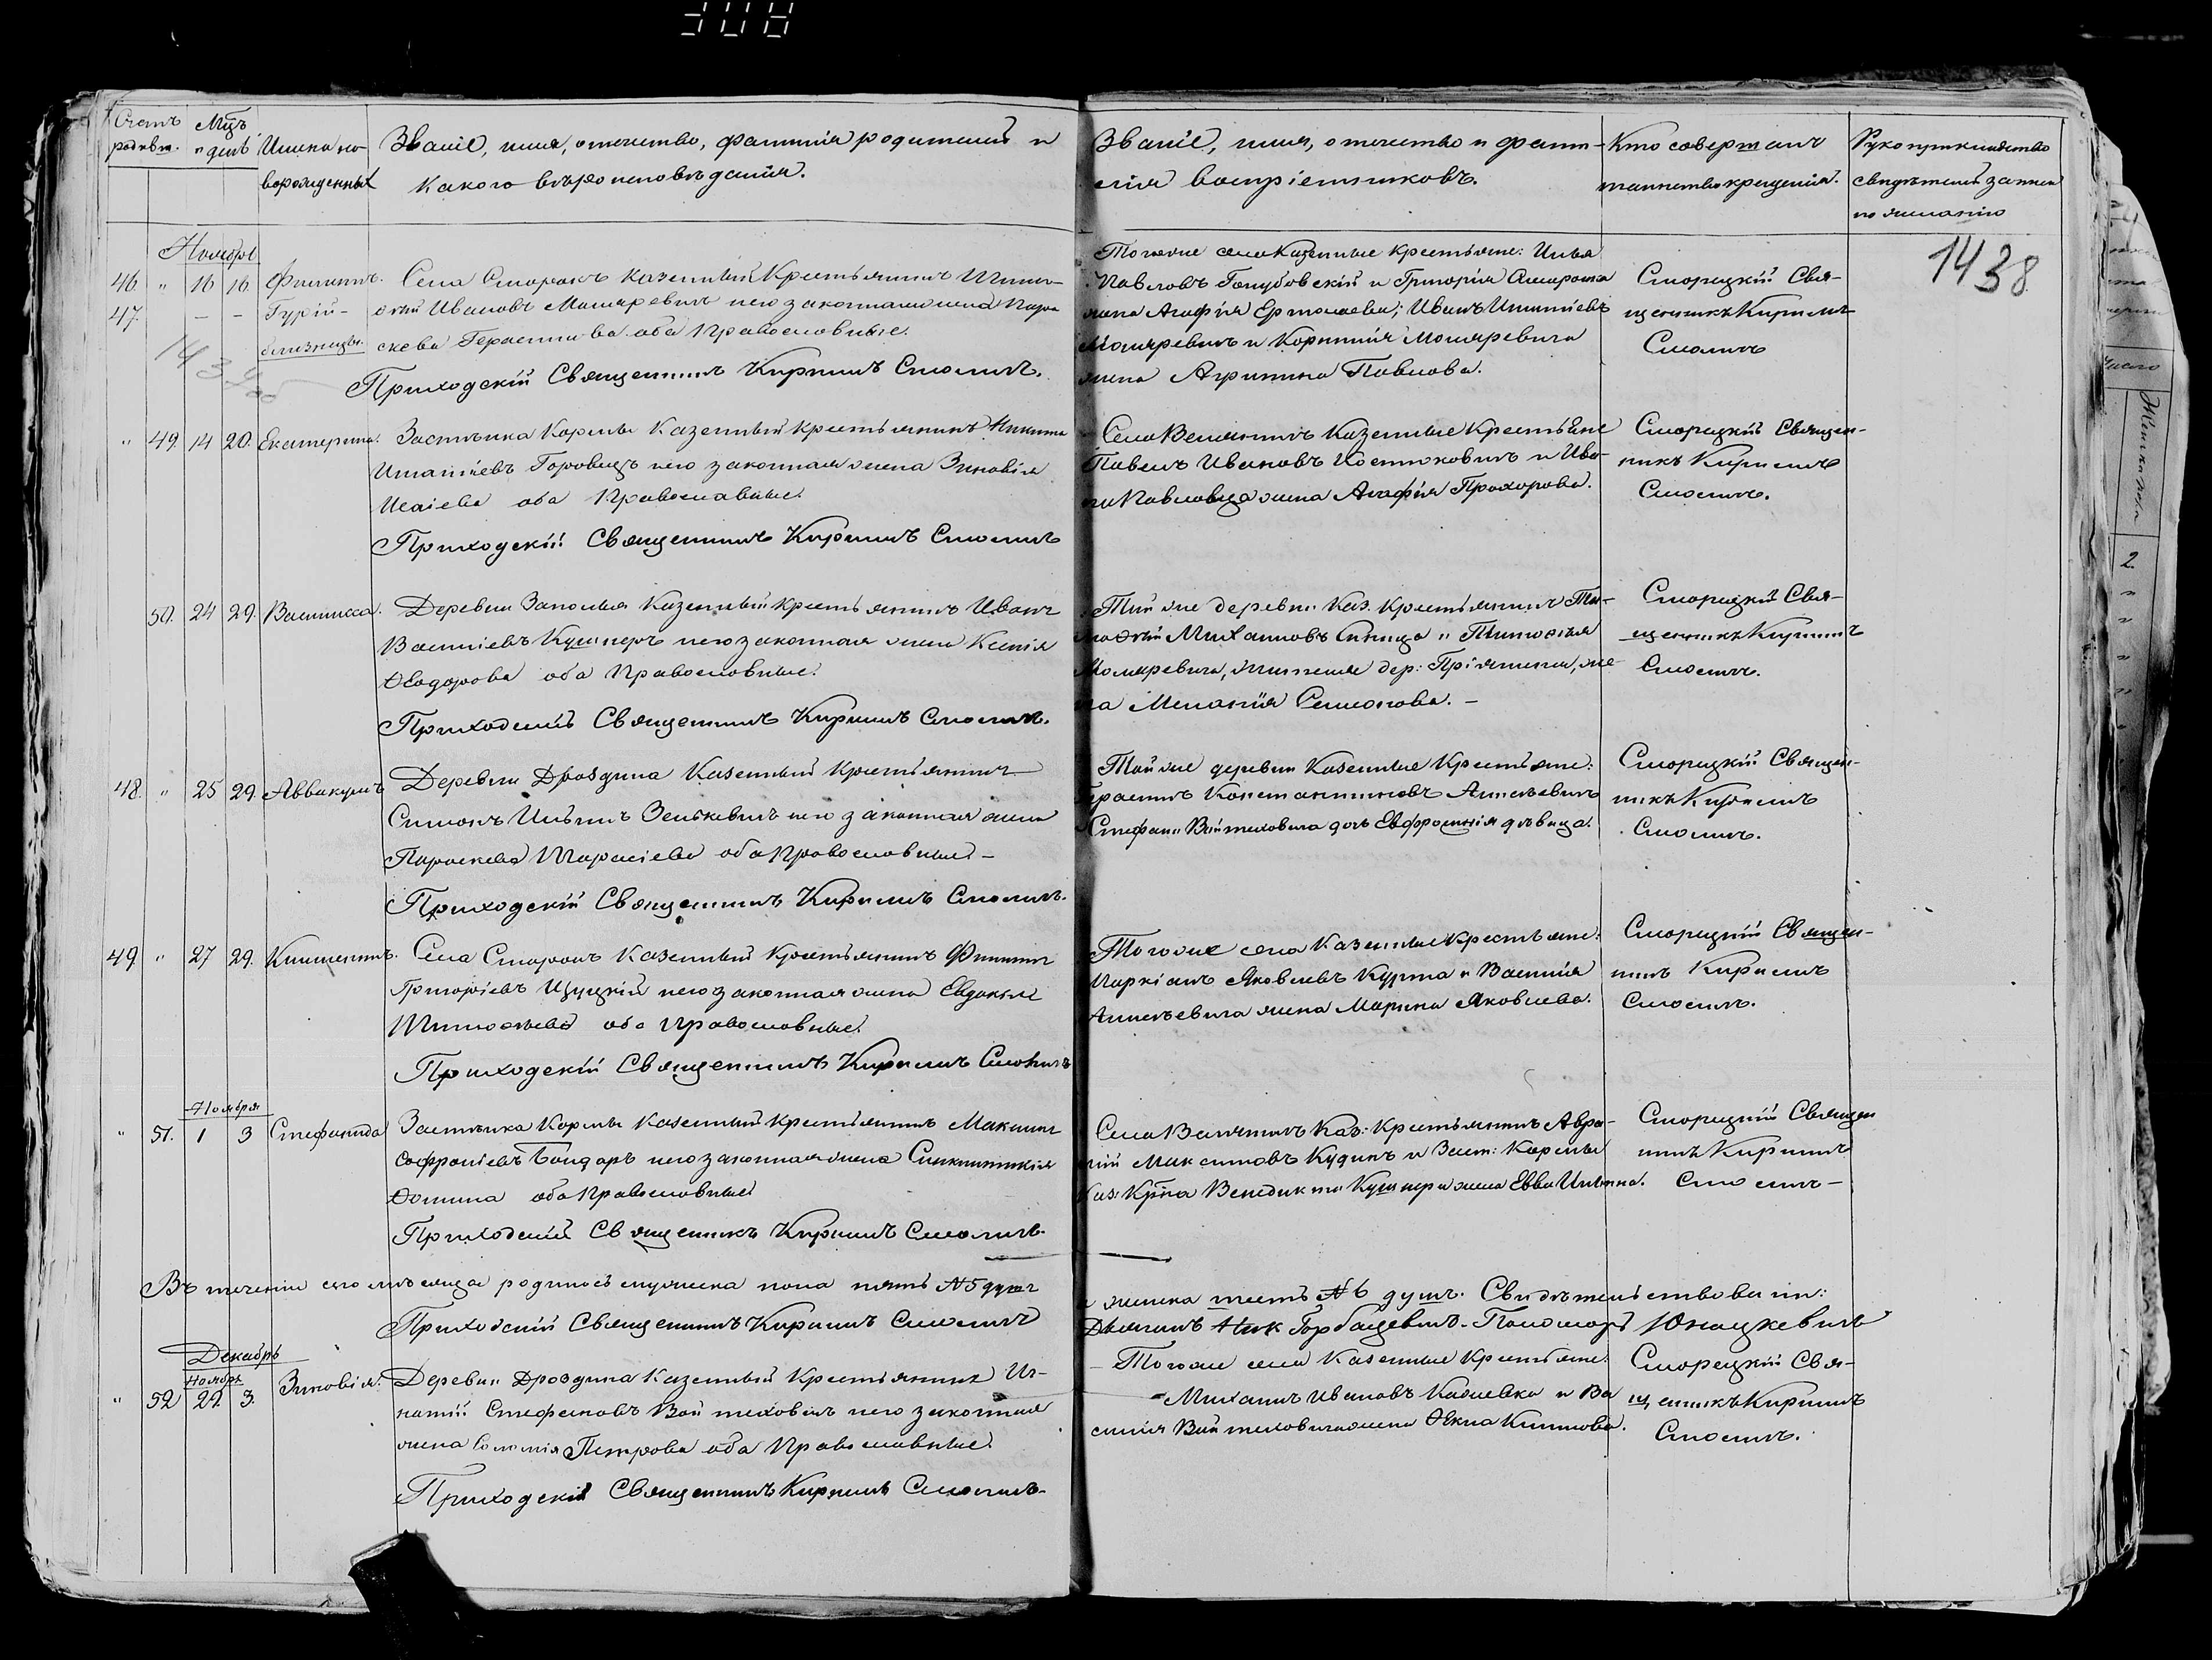 308
Счетъ родивш.
Мцъ и день
Имена но-
ворожденныхъ
Званіе, имя, отечество, фамилія родителей и
какого вѣроисповѣданія.
Званіе, имя, отечество и фами-
лія воспріемниковъ.
Кто совершалъ
таинство крещенія.
Рукоприкладство
свидѣтелей записи
по желанію
1438
Ноябрь
46. " 16 16. Филиппъ.
47. — — Гурій —
близнецы.
Села Сморокъ казенный Крестьянинъ Тимо-
ѳей Ивановъ Мошаревичъ и его законная жена Пара
скева Герасимова оба Православные.
Приходскій Священникъ Кириллъ Смоличъ.
Того же села Казенные Крестьяне: Илья
Павловъ Голубовскій и Григорія
жена Агафія Ермолаева; Иванъ Игнатіевъ
Мошаревичъ и Корнилія Мошаревича
жена Агрипина Павлова.
Сморицкій Свя-
щенникъ Кириллъ
Смоличъ
" 49. 14 20. Екатерина.
Застѣнка Кормы Казенный крестьянинъ Никита
Игнатіевъ Горовецъ и его законная жена Зиновія
Исаіева оба Православные.
Приходскій Священникъ Кириллъ Смоличъ
Села Велятичъ Казенные Крестьяне
Павелъ Ивановъ Костюковичъ и Ива-
на Павловца жена Агафія Прохорова.
Сморицкій Священ-
никъ Кириллъ
Смоличъ.
50. 24 29. Василисса.
Деревни Заполья Казенный крестьянинъ Иванъ
Василіевъ Кушнеръ и его законная жена Ксенія
Ѳеодорова оба Православные.
Приходскій Священникъ Кириллъ Смоличъ.
Той же деревни Каз. Крестьянинъ Ти-
моѳей Михаиловъ Синица и Тимоѳея
Мошаревича, жителя дер: , же-
на Меланія Семенова. —
Сморицкій Свя-
щенникъ Кириллъ
Смоличъ.
48. " 25 29. Аввакумъ
Деревни Дроздина Казенный Крестьянинъ
Симонъ Ильинъ Зенькевичъ и его законная жена
Параскева Тарасіева оба Православные. —
Приходскій Священникъ Кириллъ Смоличъ.
Той же деревни Казенные Крестьяне:
Герасимъ Константиновъ Алексѣевичъ
Стефана Войтеховича дочь Евфросинія дѣвица.
Сморицкій Священ-
никъ Кириллъ
Смоличъ.
49. " 27 29. Климентъ.
Села Сморокъ Казенный Крестьянинъ Филиппъ
Григоріевъ и его законная жена Евдокія
Тимоѳеева оба Православные.
Приходскій Священникъ Кириллъ Смоличъ
Того же села Казенные Крестьяне:
Маркіанъ Яковлевъ Курта и Василія
Алексѣевича жена Марина Яковлева.
Сморицкій Священ-
никъ Кириллъ
Смоличъ.
Ноября
" 51. 1 3 Стефанида
Застѣнка Кормы Казенный Крестьянинъ Максимъ
Софроніевъ Бондарь и его законная жена Синклитикія
Ѳомина оба Православные
Приходскій Священникъ Кириллъ Смоличъ.
Села Велятичъ Каз: Крестьянинъ Авра-
мій Максимовъ Кудинъ и Заст: Кормы
Каз: Кр-на Венедикта Кушнера жена Евва Ильина.
Сморицкій Священ
никъ Кириллъ
Смоличъ —
Въ теченіи сего мѣсяца родилось мужеска пола пять № 5 душъ
и женска шесть № 6 душъ. Свидѣтельствовали:
Приходскій Священникъ Кириллъ Смоличъ
Дьячекъ Горбацевичъ. Пономарь Юнацкевичъ
Декабрь
Ноября
" 52 29. 3. Зиновія.
Деревни Дроздина Казенный Крестьянинъ Иг-
натій Стефановъ Войтеховичъ и его законная
жена Соломія Петрова оба Православные.
Приходскій Священникъ Кириллъ Смоличъ.
— Того же села Казенные Крестьяне:
Михаилъ Ивановъ и Ва
силія Войтеховича жена Ѳекла Климова.
Сморицкій Свя-
щенникъ Кириллъ
Смоличъ.